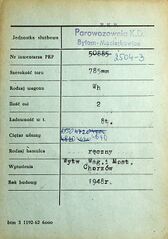 P.K.P.
Jednostka służbowa Parowozownia K.D.
Bytom-Maciejkowice
Nr inwentarza PKP 50885 2504-3
Szerokość toru 785mm
Rodzaj wagonu Wh
Ilość osi 2
Ładowność w t. 8t.
Ciężar własny
Rodzaj hamulca ręczny
Wytw Wag.i Most.
Wytwórnia Chorzów
Rok budowy 1948r.